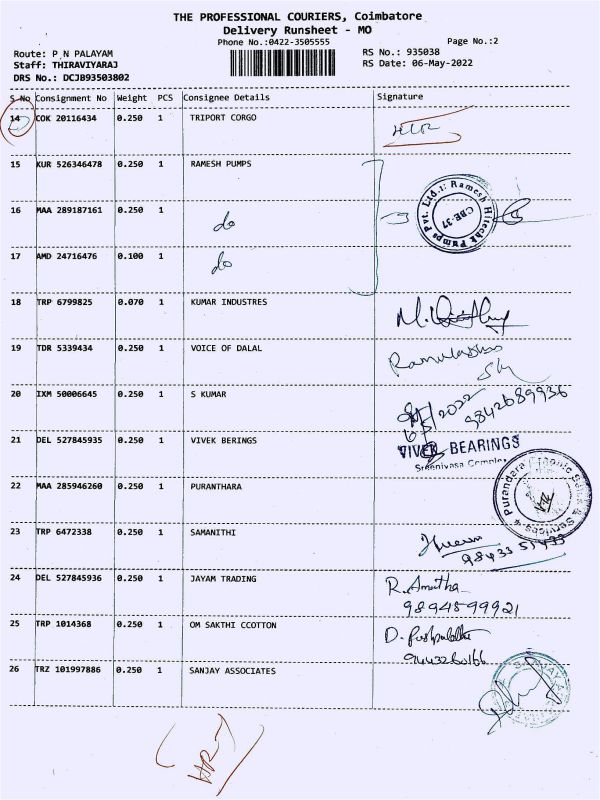 THE PROFESSIONAL COURIERS, Coimbatore
Delivery Runsheet - MO
Phone No.:0422-3505555 Page No.:2
Route: P N PALAYAM RS No.: 935038
Staff: THIRAVIYARAJ RS Date: 06-May-2022
DRS No.: DCJB93503802
S No Consignment No Weight PCS Consignee Details Signature
14 COK 20116434 0.250 1 TRIPORT CORGO
15 KUR 526346478 0.250 1 RAMESH PUMPS
Pvt. Ltd.: Ramesh Hitech Pumps
CBE-37
16 MAA 289187161 0.250 1 do
17 AMD 24716476 0.100 1 do
18 TRP 6799825 0.070 1 KUMAR INDUSTRES
19 TDR 5339434 0.250 1 VOICE OF DALAL
20 IXM 50006645 0.250 1 S KUMAR
6/5/2022 9842689936
21 DEL 527845935 0.250 1 VIVEK BERINGS VIVEK BEARINGS
Sreenivasa Complex
22 MAA 285946260 0.250 1 PURANTHARA
Purandara Sales & Services
23 TRP 6472338 0.250 1 SAMANITHI
24 DEL 527845936 0.250 1 JAYAM TRADING R. Amutha
9894599921
25 TRP 1014368 0.250 1 OM SAKTHI CCOTTON D. Pushpalatha
9443260166
26 TRZ 101997886 0.250 1 SANJAY ASSOCIATES
SANJAY